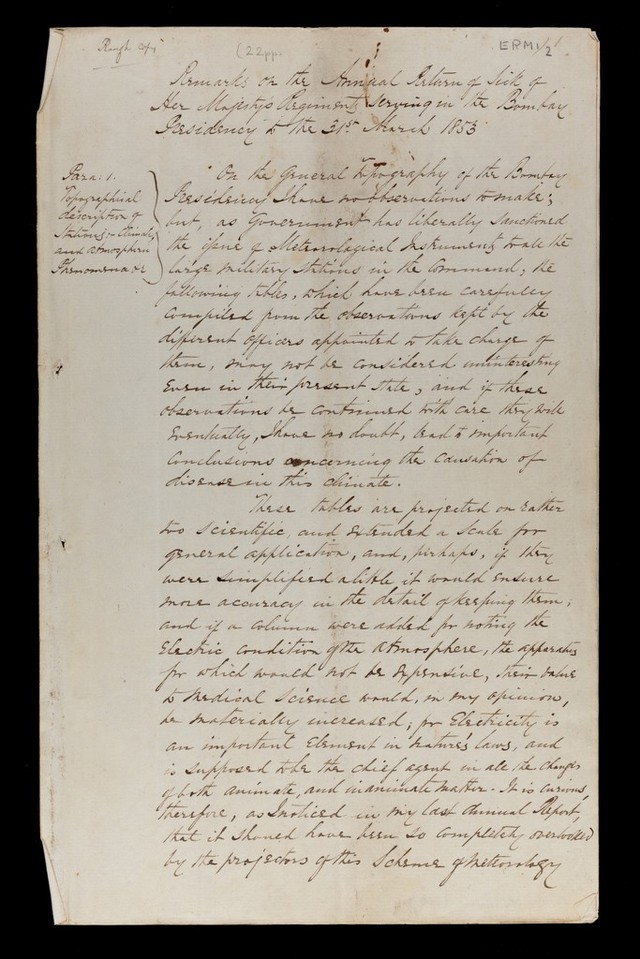 Rough Copy
(22pp.
ERM1/2
Remarks on the Annual Return of Sick of
Her Majestys Regiments Serving in the Bombay
Presidency to the 31st March 1853
Para: 1.
Topographical
description of
Stations - Climate,
and Atmospheric
Phenomena &c
On the General Topography of the Bombay
Presidency I have no observations to make;
but, as Government has liberally sanctioned
the issue of Meteorological Instruments to all the
large military Stations in the Command, the
following tables, which have been carefully
compiled from the observations kept by the
different officers appointed to take charge of
them, may not be considered uninteresting
even in their present state, and if these
observations be continued with care they will
eventually, I have no doubt, lead to important
conclusions concerning the causation of
disease in this climate.
These tables are projected on rather
too scientific, and extended a scale for
general application, and, perhaps, if they
were simplified a little it would ensure
more accuracy in the detail of keeping them;
and if a column were added for noting the
Electric condition of the atmosphere, the apparatus
for which would not be expensive, their value
to Medical Science would, in my opinion,
be materially increased; for Electricity is
an important Element in nature's laws, and
is supposed to be the chief agent in all the changes
of both animate, and inanimate matter. It is curious,
therefore, as I noticed in my last Annual Report,
that it should have been so completely overlooked
by the projectors of this Scheme of Meteorology